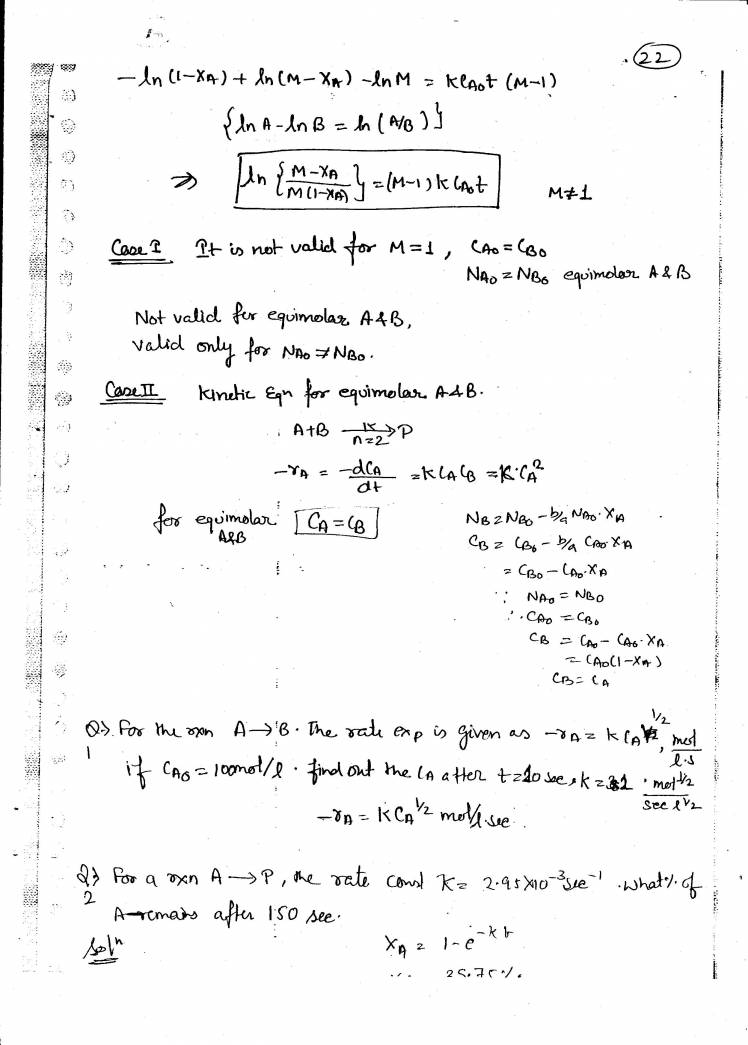 22
-ln (1-XA) + ln (M-XA) -ln M = KCA0t (M-1)
{ln A - ln B = ln (A/B)}
⇒ ln {M-XA / M(1-XA)} = (M-1) K CA0t M≠1
Case I It is not valid for M=1, CA0 = CB0
NA0 = NB0 equimolar A & B
Not valid for equimolar A&B,
valid only for NA0 ≠ NB0.
Case II Kinetic Eqn for equimolar A&B.
A+B K→ n=2 P
-rA = -dCA/dt = KCACB = K·CA²
for equimolar A&B CA = CB
NB = NB0 - b/a NA0·XA
CB = CB0 - b/a CA0·XA
= CB0 - CA0·XA
∵ NA0 = NB0
∴ CA0 = CB0
CB = CA0 - CA0·XA
= CA0(1-XA)
CB = CA
Q1> For the rxn A→B. The rate exp is given as -rA = K CA^1/2, mol/l.s
if CA0 = 100mol/l. find out the CA after t=10 sec, k=1 mol^1/2 / sec l^1/2
-rA = KCA^1/2 mol/l sec
Q2> For a rxn A→P, the rate const K = 2.95×10^-3 sec^-1. what % of
A remains after 150 sec.
Soln XA = 1-e^-kt